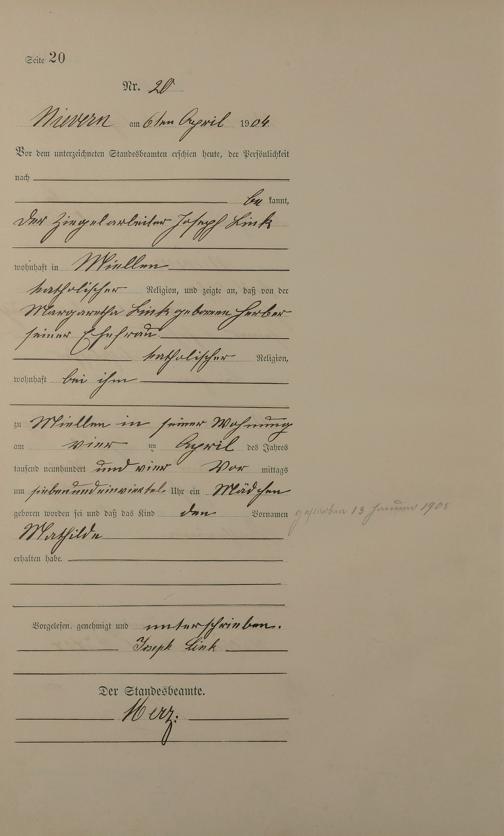 Seite 20
Nr. 20
Nievern am 6ten April 1904
Vor dem unterzeichneten Standesbeamten erschien heute, der Persönlichkeit
nach
be kannt,
der Ziegelarbeiter Joseph Link
wohnhaft in Miellen
katholischer Religion, und zeigte an, daß von der
Margaretha Link geborenen Herber
seiner Ehefrau
katholischer Religion,
wohnhaft bei ihm
zu Miellen in seiner Wohnung
am vier ten April des Jahres
tausend neunhundert und vier Vor mittags
um siebenundeinviertel Uhr ein Mädchen
geboren worden sei und daß das Kind den Vornamen gestorben 13 Januar 1905
Mathilde
erhalten habe.
Vorgelesen, genehmigt und unterschrieben.
Joseph Link
Der Standesbeamte.
Merz.